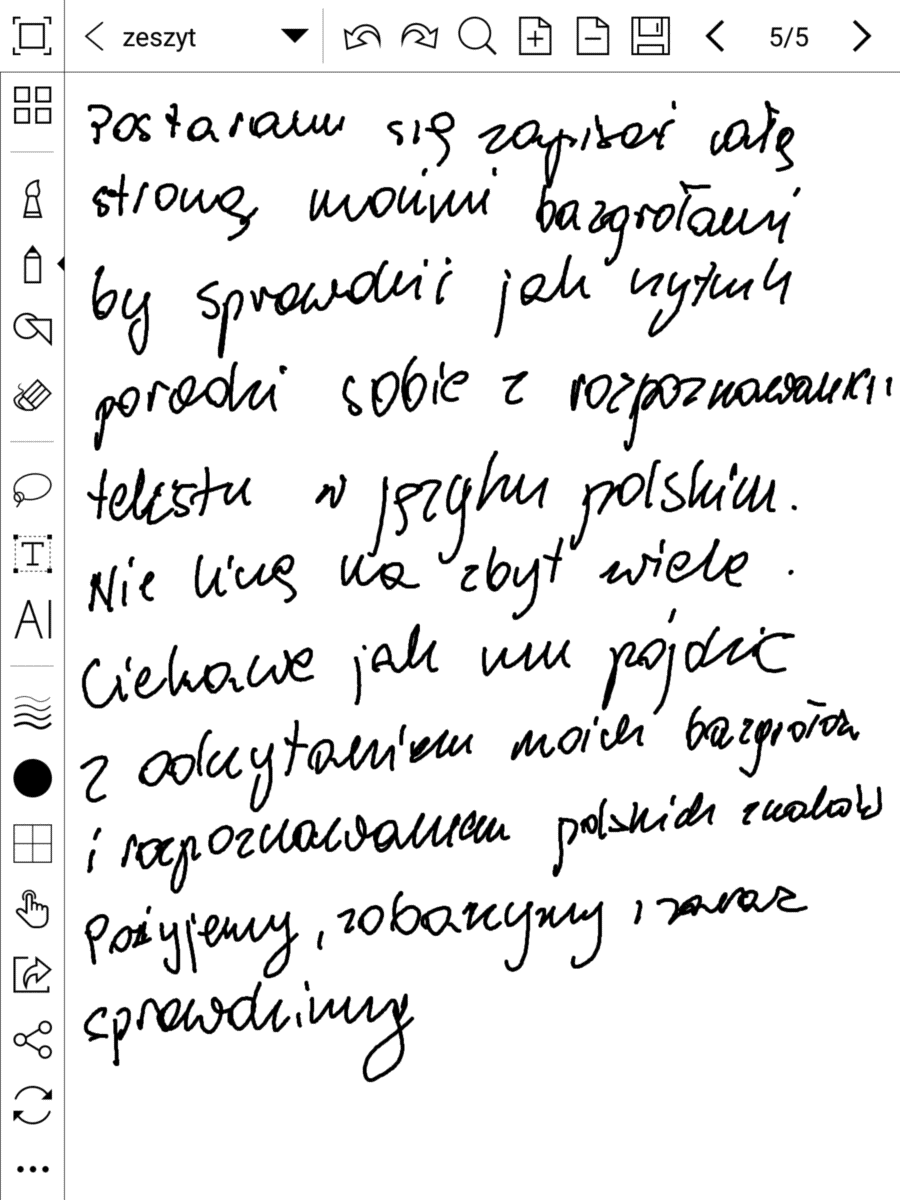 zeszyt 5/5
Postaram się zapisać całą
stronę moimi bazgrołami
by sprawdzić jak czytnik
poradzi sobie z rozpoznawaniem
tekstu w języku polskim.
Nie liczę na zbyt wiele.
Ciekawe jak mu pójdzie
z odczytaniem moich bazgrołów
i rozpoznawaniem polskich znaków
Pożyjemy, zobaczymy, zaraz
sprawdzimy
T
A